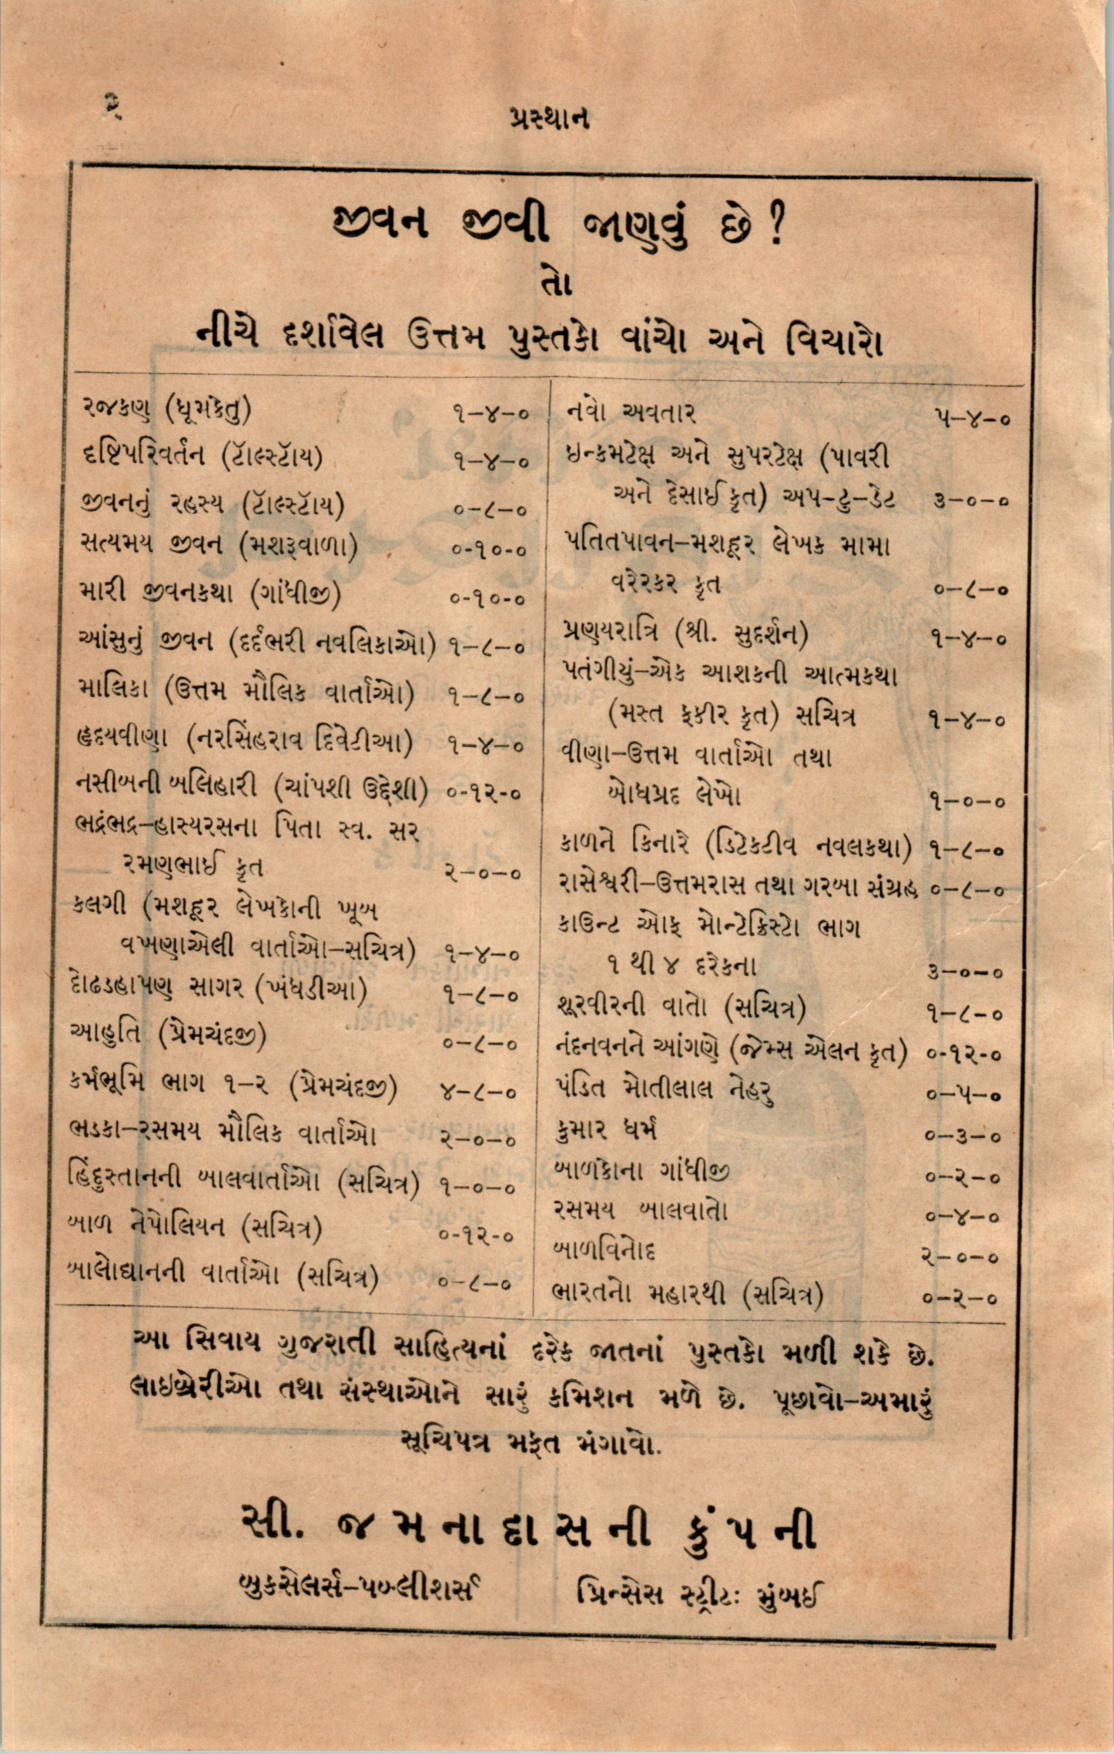 ૨
પ્રસ્થાન
જીવન જીવી જાણવું છે?
તો
નીચે દર્શાવેલ ઉત્તમ પુસ્તકો વાંચો અને વિચારો
રજકણ (ધૂમકેતુ) ૧–૪–૦
દષ્ટિપરિવર્તન (ટૉલ્સ્ટૉય) ૧–૪–૦
જીવનનું રહસ્ય (ટૉલ્સ્ટૉય) ૦–૮–૦
સત્યમય જીવન (મશરૂવાળા) ૦-૧૦-૦
મારી જીવનકથા (ગાંધીજી) ૦-૧૦-૦
આંસુનું જીવન (દર્દભરી નવલિકાઓ) ૧–૮–૦
માલિકા (ઉત્તમ મૌલિક વાર્તાઓ) ૧–૮–૦
હૃદયવીણા (નરસિંહરાવ દિવેટીઆ) ૧–૪–૦
નસીબની બલિહારી (ચાંપશી ઉદ્દેશી) ૦-૧૨-૦
ભદ્રંભદ્ર–હાસ્યરસના પિતા સ્વ. સર
રમણભાઈ કૃત ૨–૦–૦
કલગી (મશહૂર લેખકોની ખૂબ
વખણાએલી વાર્તાઓ–સચિત્ર) ૧–૪–૦
દોઢડહાપણ સાગર (ખંધડીઆ) ૧–૮–૦
આહુતિ (પ્રેમચંદજી) ૦–૮–૦
કર્મભૂમિ ભાગ ૧–૨ (પ્રેમચંદજી) ૪–૮–૦
ભડકા–રસમય મૌલિક વાર્તાઓ ૨–૦–૦
હિંદુસ્તાનની બાલવાર્તાઓ (સચિત્ર) ૧–૦–૦
બાળ નેપોલિયન (સચિત્ર) ૦-૧૨-૦
બાલોદ્યાનની વાર્તાઓ (સચિત્ર) ૦–૮–૦
નવો અવતાર ૫–૪–૦
ઇન્કમટેક્ષ અને સુપરટેક્ષ (પાવરી
અને દેસાઈ કૃત) અપ-ટુ-ડેટ ૩–૦–૦
પતિતપાવન–મશહૂર લેખક મામા
વરેરકર કૃત ૦–૮–૦
પ્રણયરાત્રિ (શ્રી. સુદર્શન) ૧–૪–૦
પતંગીયું–એક આશકની આત્મકથા
(મસ્ત ફકીર કૃત) સચિત્ર ૧–૪–૦
વીણા–ઉત્તમ વાર્તાઓ તથા
બોધપ્રદ લેખો ૧–૦–૦
કાળને કિનારે (ડિટેક્ટીવ નવલકથા) ૧–૮–૦
રાસેશ્વરી–ઉત્તમરાસ તથા ગરબા સંગ્રહ ૦–૮–૦
કાઉન્ટ ઓફ મોન્ટેક્રિસ્ટો ભાગ
૧ થી ૪ દરેકના ૩–૦–૦
શૂરવીરની વાતો (સચિત્ર) ૧–૮–૦
નંદનવનને આંગણે (જેમ્સ એલન કૃત) ૦-૧૨-૦
પંડિત મોતીલાલ નેહરુ ૦–૫–૦
કુમાર ધર્મ ૦–૩–૦
બાળકોના ગાંધીજી ૦–૨–૦
રસમય બાલવાતો ૦–૪–૦
બાળવિનોદ ૨–૦–૦
ભારતનો મહારથી (સચિત્ર) ૦–૨–૦
આ સિવાય ગુજરાતી સાહિત્યનાં દરેક જાતનાં પુસ્તકો મળી શકે છે.
લાઇબ્રેરીઓ તથા સંસ્થાઓને સારું કમિશન મળે છે. પૂછાવો–અમારું
સૂચિપત્ર મફત મંગાવો.
સી. જમનાદાસની કુંપની
બુકસેલર્સ–પબ્લીશર્સ પ્રિન્સેસ સ્ટ્રીટ: મુંબઈ